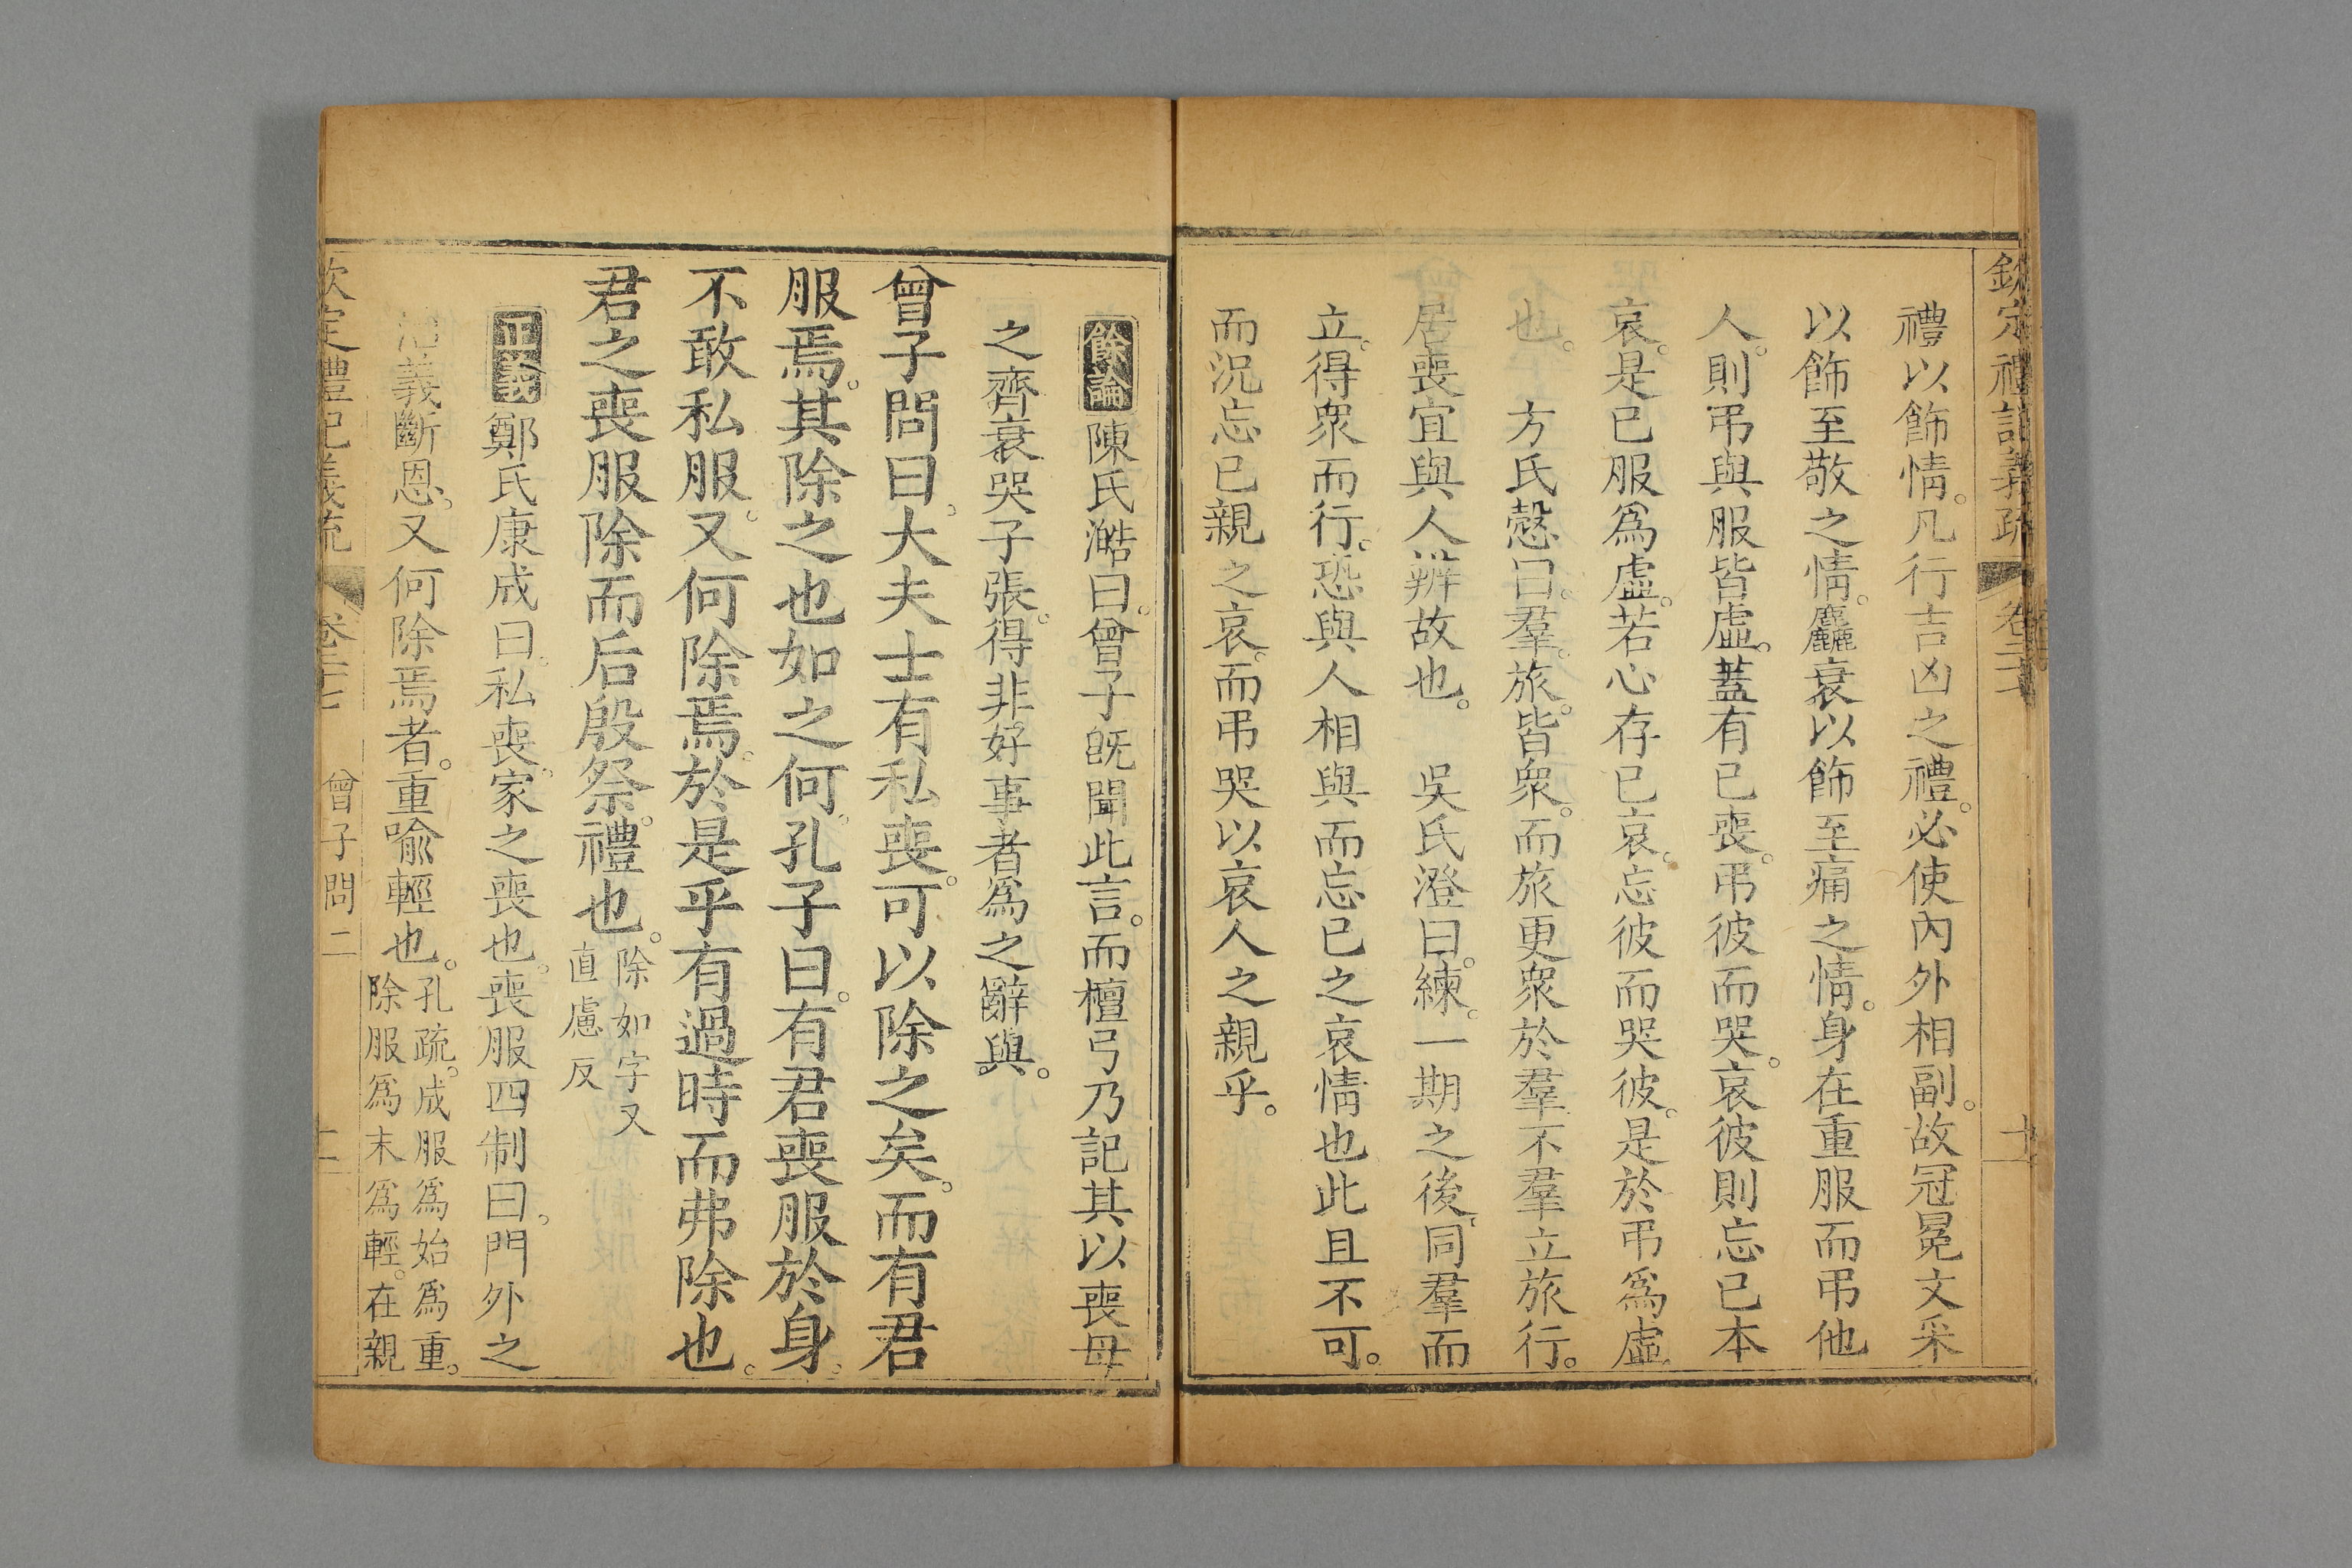 欽定禮記義疏 卷二十七 十
禮以飾情。凡行吉凶之禮。必使內外相副。故冠冕文采
以飾至敬之情。麤衰以飾至痛之情。身在重服而弔他
人。則弔與服皆虛。蓋有已喪。弔彼而哭。哀彼則忘已本
哀。是已服爲虛。若心存已哀。忘彼而哭彼。是於弔爲虛
也。 方氏慤曰。羣。旅。皆衆。而旅更衆於羣不羣立旅行。
居喪宜與人辨故也。 吳氏澄曰。練。一期之後。同羣而
立。得衆而行。恐與人相與而忘已之哀情也此且不可。
而況忘已親之哀。而弔哭以哀人之親乎。
餘論 陳氏澔曰。曾子旣聞此言。而檀弓乃記其以喪母
之齊衰哭子張。得非好事者爲之辭與。
曾子問曰。大夫士有私喪。可以除之矣。而有君
服焉。其除之也如之何。孔子曰。有君喪服於身。
不敢私服。又何除焉。於是乎有過時而弗除也。
君之喪服除而后殷祭。禮也。除如字又
直慮反
正義 鄭氏康成曰。私喪。家之喪也。喪服四制曰。門外之
治義斷恩。又何除焉者。重喻輕也。孔疏。成服爲始爲重。
除服爲末爲輕。在親
欽定禮記義疏 卷二十七 曾子問二 十一